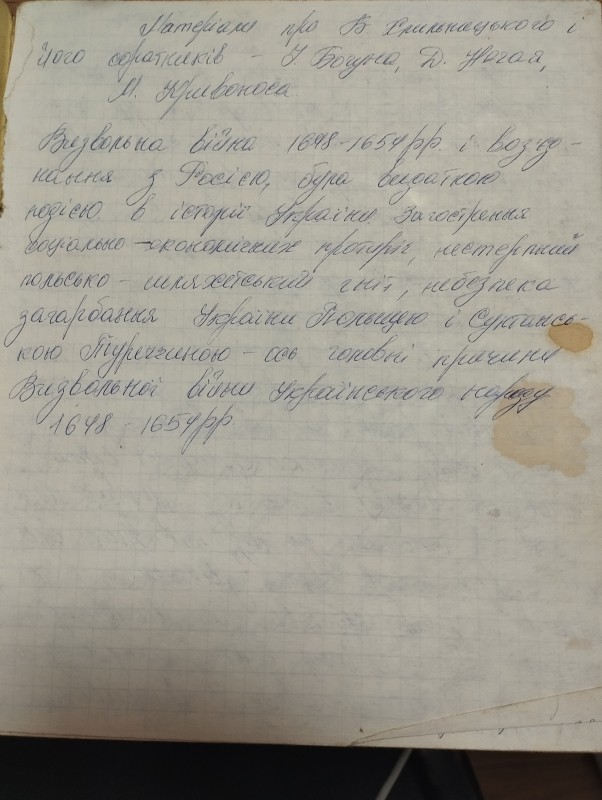 Матеріали про Б Хмельницького і
його соратників – І. Богуна, Д. Нечая,
М. Кривоноса
Визвольна війна 1648–1654 рр. і возз'єд-
нання з Росією, була видатною
подією в історії України. Загострення
соціально-економічних протиріч, нестерпний
польсько-шляхетський гніт, небезпека
загарбання України Польщею і Султансь-
кою Туреччиною – ось головні причини
Визвольної війни Українського народу
1648–1654 рр.